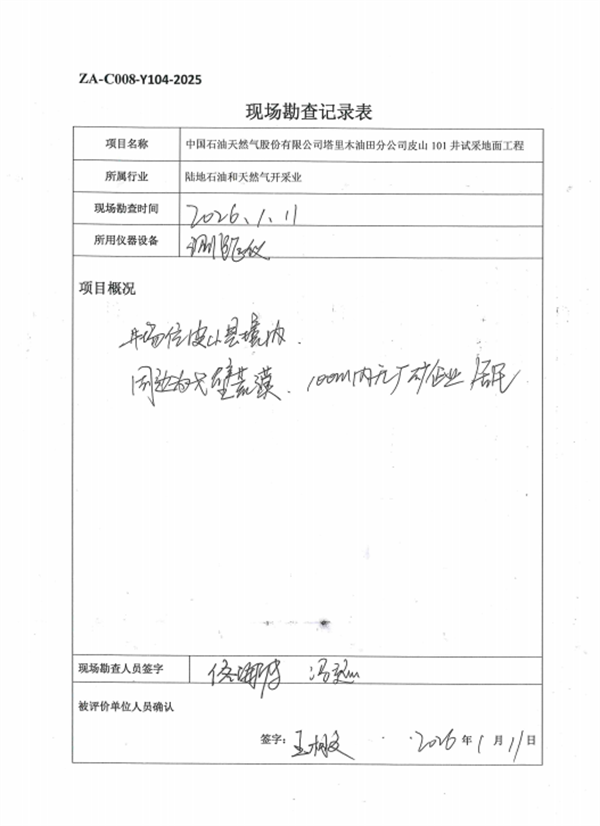 ZA-C008-Y104-2025
现场勘查记录表
项目名称 中国石油天然气股份有限公司塔里木油田分公司皮山 101 井试采地面工程
所属行业 陆地石油和天然气开采业
现场勘查时间 2026.1.11
所用仪器设备 测距仪
项目概况
井场位皮山县境内.
周边为戈壁荒漠. 100m内无厂矿企业 居民
现场勘查人员签字
被评价单位人员确认
签字: 2026 年 1 月 11 日